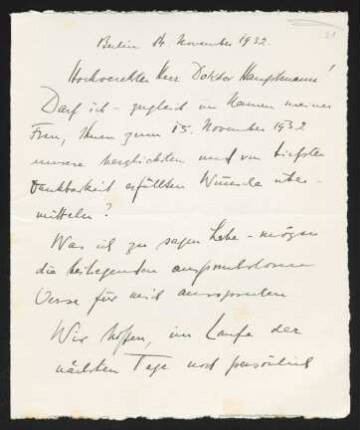 21
Berlin 14. November 1932.
Hochverehrter Herr Doktor Hauptmann!
Darf ich - zugleich im Namen meiner
Frau, Ihnen zum 15. November 1932
unsere herzlichsten und von tiefster
Dankbarkeit erfüllten Wünsche über-
mitteln?
Was ich zu sagen habe - mögen
die beiliegenden anspruchslosen
Verse für mich aussprechen
Wir hoffen, im Laufe der
nächsten Tage noch persönlich